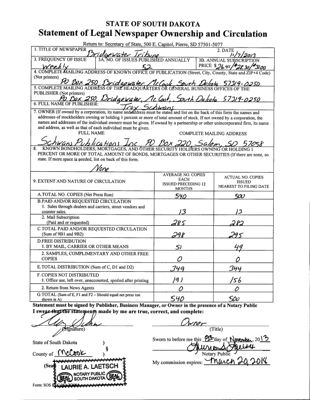 STATE OF SOUTH DAKOTA
Statement of Legal Newspaper Ownership and Circulation
Return to: Secretary of State, 500 E. Capitol, Pierre, SD 57501-5077
1. TITLE OF NEWSPAPER
Bridgewater Tribune
2. DATE
3. FREQUENCY OF ISSUE
Weekly
3A. NO. OF ISSUES PUBLISHED ANNUALLY
52
3B. ANNUAL SUBSCRIPTION
PRICE $
4. COMPLETE MAILING ADDRESS OF KNOWN OFFICE OF PUBLICATION (Street, City, County, State and ZIP+4 Code)
(Not printers)
PO Box 250, Bridgewater, McCook, South Dakota 57319-0250
5. COMPLETE MAILING ADDRESS OF THE HEADQUARTERS OR GENERAL BUSINESS OFFICES OF THE
PUBLISHER (Not printers)
PO Box 250, Bridgewater, McCook, South Dakota 57319-0250
6. FULL NAME OF PUBLISHER:
Troy Schwans
7. OWNER (If owned by a corporation, its name
addresses of stockholders owning or holding 1 percent or more of total amount of stock. If not owned by a corporation, the
names and addresses of the individual owners must be given. If owned by a partnership or other unincorporated firm, its name
and address, as well as that of each individual must be given.
FULL NAME
COMPLETE MAILING ADDRESS
Schwans Publications Inc. PO Box 220 Salem, SD 57058
8. KNOWN BONDHOLDERS, MORTGAGES, AND OTHER SECURITY HOLDERS OWNING OR HOLDING 1
PERCENT OR MORE OF TOTAL AMOUNT OF BONDS, MORTGAGES OR OTHER SECURITIES (If there are none, so
state. If more space is needed, list on back of this form.
None
9. EXTENT AND NATURE OF CIRCULATION
AVERAGE NO. COPIES
EACH
ISSUED PRECEDING 12
MONTHS
ACTUAL NO. COPIES
ISSUED
NEAREST TO FILING DATE
A.TOTAL NO. COPIES (Net Press Run)
540
500
B.PAID AND/OR REQUESTED CIRCULATION
1. Sales through dealers and carriers, street vendors and
counter sales.
13
13
2. Mail Subscription
(Paid and or requested)
285
282
C.TOTAL PAID AND/OR REQUESTED CIRCULATION
(Sum of 9B1 and 9B2)
298
295
D.FREE DISTRIBUTION
1. BY MAIL, CARRIER OR OTHER MEANS
51
49
2. SAMPLES, COMPLIMENTARY AND OTHER FREE
COPIES
0
0
E. TOTAL DISTRIBUTION (Sum of C, D1 and D2)
349
344
F. COPIES NOT DISTRIBUTED
1. Office use, left over, unaccounted, spoiled after printing
191
156
2. Return from News Agents
0
0
G. TOTAL (Sum of E, F1 and F2 - Should equal net press run
shown in A)
540
500
Statement must be signed by Publisher, Business Manager, or Owner in the presence of a Notary Public
I swear that the statements made by me are true, correct, and complete:
Owner
(Signature)
(Title)
State of South Dakota
Sworn to before me this
day of November, 2013
County of McCook
Notary Public
(Seal)
LAURIE A. LAETSCH
NOTARY PUBLIC
SOUTH DAKOTA
My commission expires: March 20, 2018